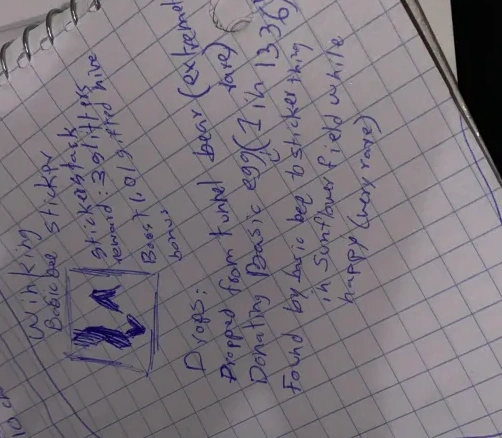 Winking
Basic bee sticker
Sticker stack
reward: 3 glitters
Boost 1.01 gifted hive
bonus
Drops:
Dropped from tunnel bear (extremely
rare)
Donating Basic egg (1 in 1336)
Found by basic bee sticker thing
in sunflower field while
happy (very rare)